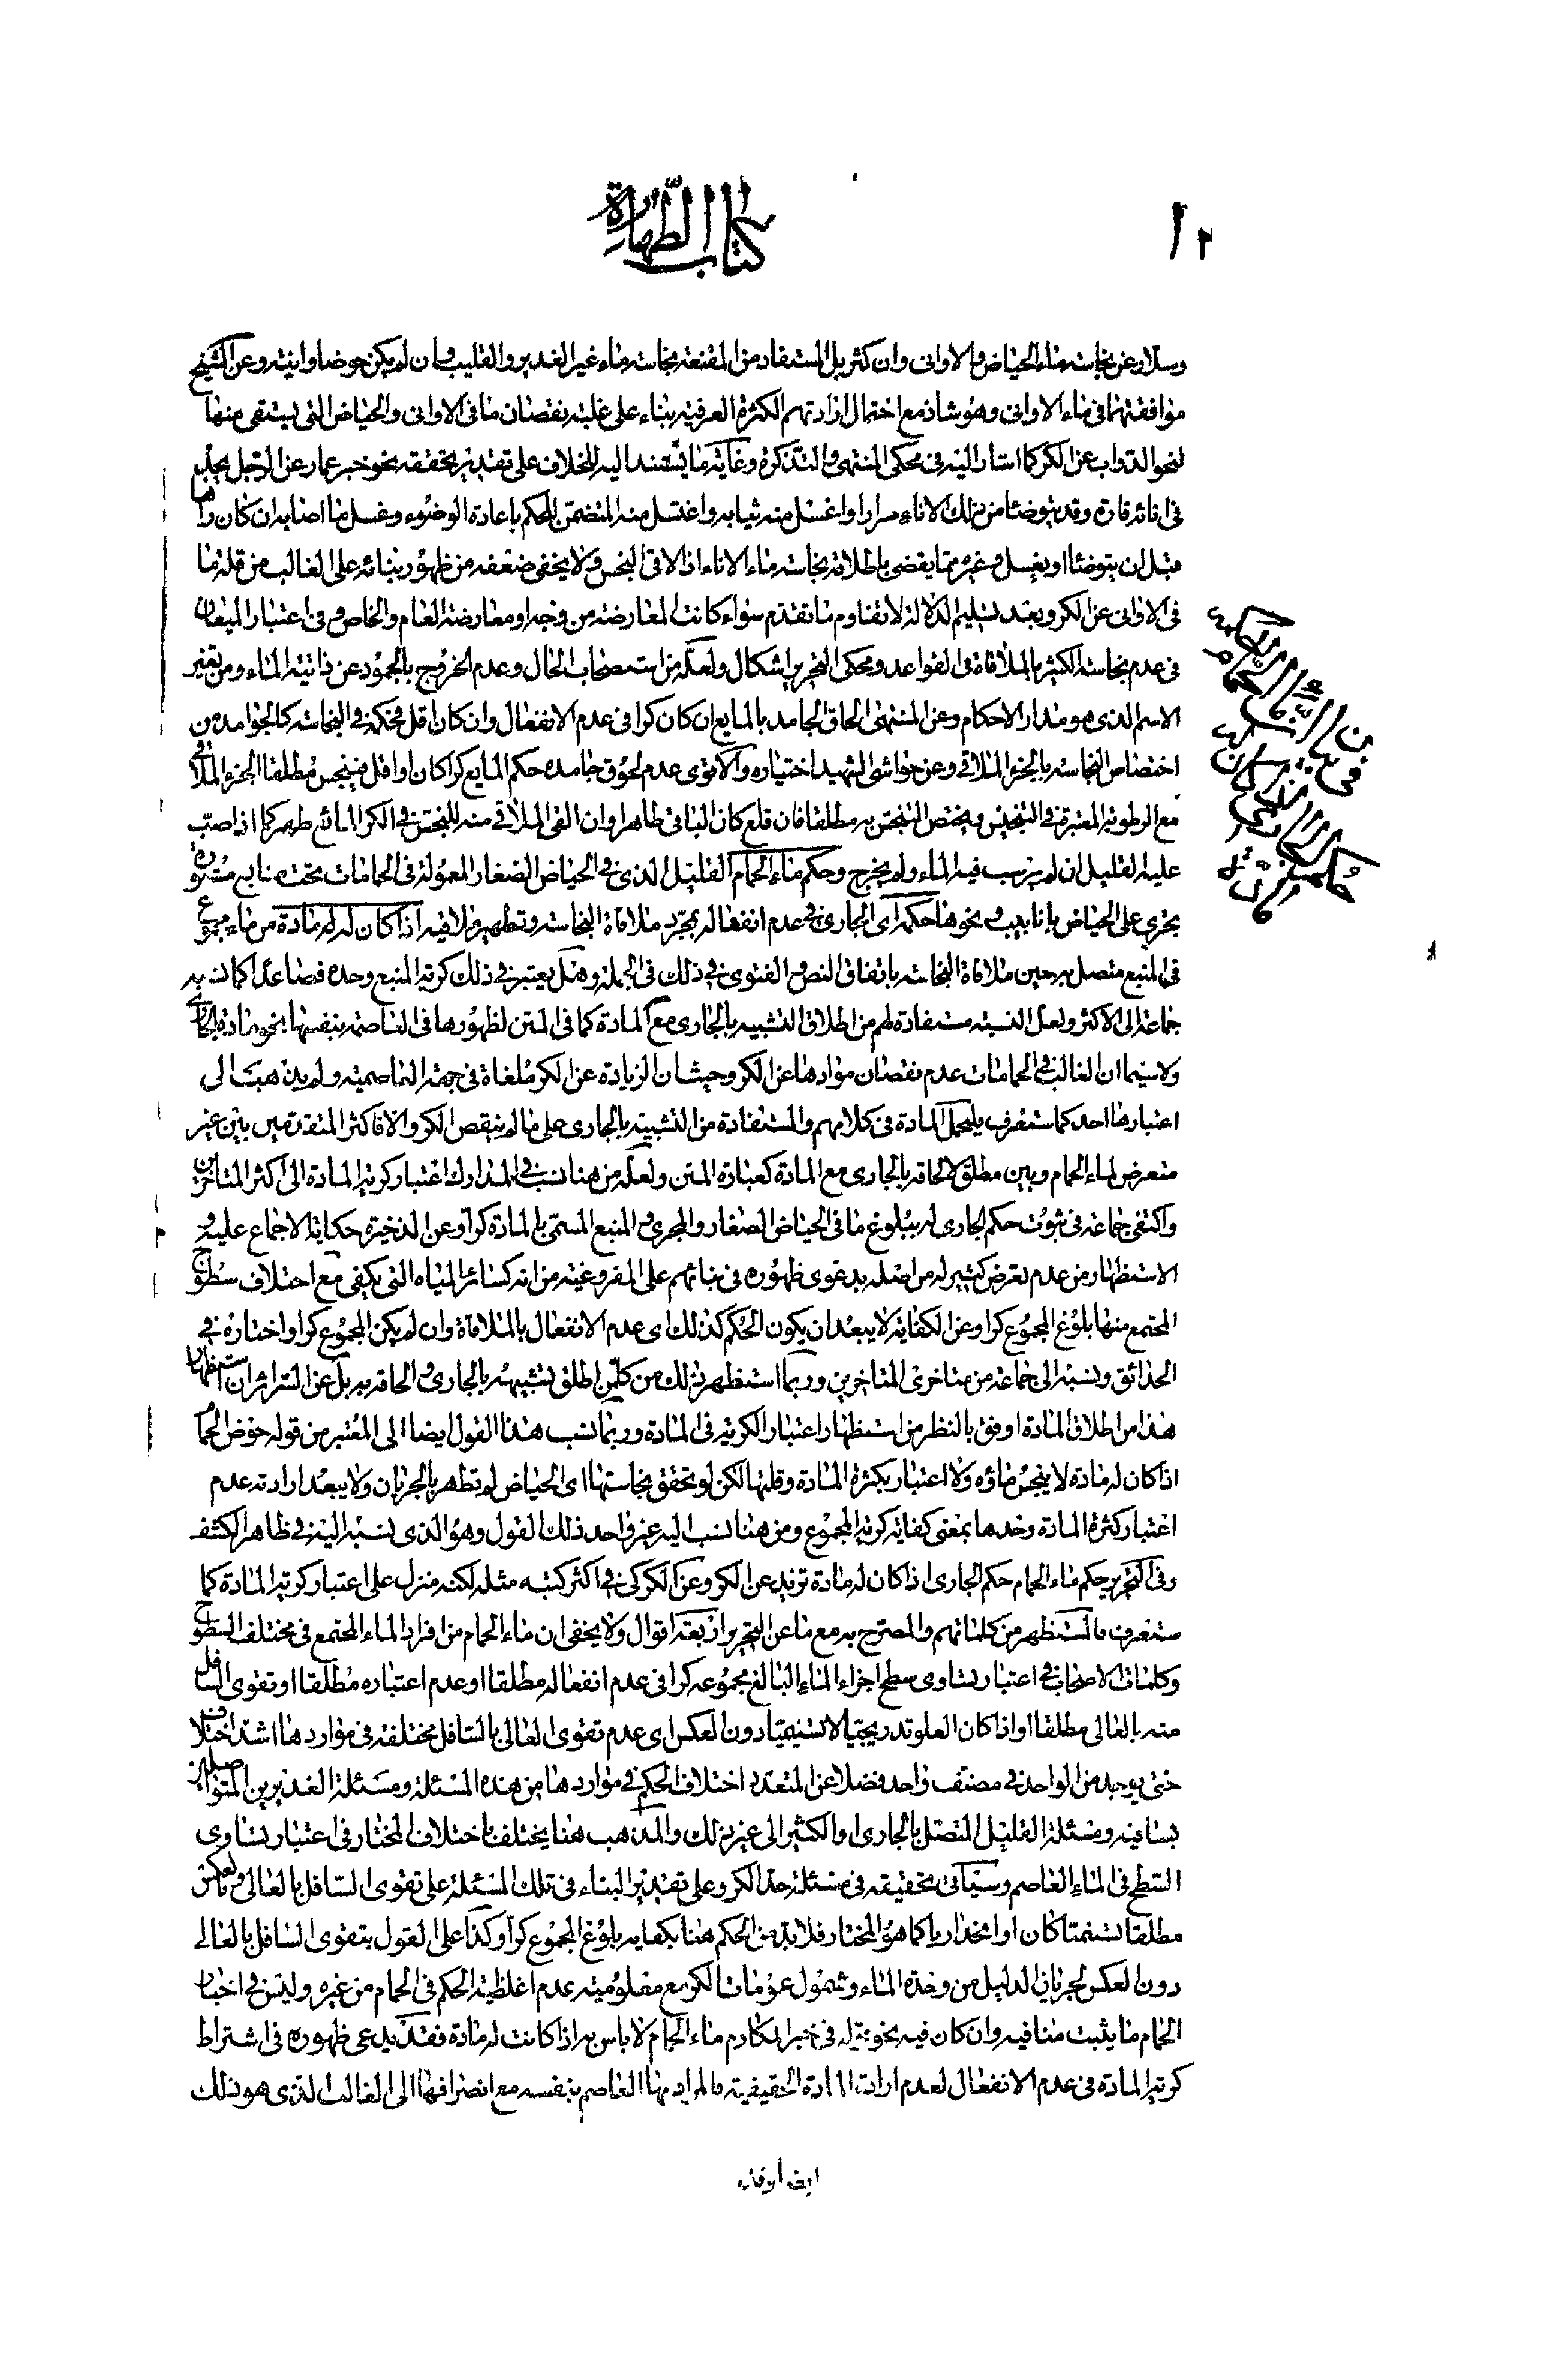 كتاب الطهارة
وسلار وعن نجاسة ماء الحياض والاواني وان كثر بل المستفاد من المقنعة نجاسة ماء غير الغدير والقليب وان لم يكن حوضا وانية وعن الشيخ
موافقتهما في ماء الاواني وهو شاذ مع احتمال ارادتهم الكثرة العرفية بناء على غلبة نقصان ما في الاواني والحياض التي يستقى منها
لنحو الدواب عن الكر كما اشار اليه في محكى المنتهى والتذكرة وغاية ما يستند اليه للخلاف على تقدير تحققه نحو خبر عمار عن الرجل يجد
في انائه فارة وقد توضأ من ذلك الاناء مرارا واغتسل منه وغسل ثيابه المتضمن للحكم باعادة الوضوء وغسل ما اصابه ان كان راها
قبل ان يتوضأ او يغسل وغيره مما يقضى باطلاقه نجاسة ماء الاناء اذا لاقى النجس ولا يخفى ضعفه من ظهور بنائه على الغالب من قلة ما
في الاواني عن الكر وبعد تسليم الدلالة لا تقاوم ما تقدم سواء كانت المعارضة من وجه او معارضة العام والخاص وفي اعتبار الميعان
في عدم نجاسة الكثير بالملاقاة في القواعد ومحكى التحرير اشكال ولعله من استصحاب الحال وعدم الخروج بالجمود عن ذاتية الماء ومن تغير
الاسم الذي هو مدار الاحكام وعن المنتهى الحاق الجامد بالمايع ان كان كرا في عدم الانفعال وان كان اقل فحكمه في النجاسة كالجوامد من
اختصاص النجاسة بالجزء الملاقي وعن حواشي الشهيد اختياره والاقوى عدم لحوق جامده حكم المايع كرا كان او اقل فينجس مطلقا الجزء الملاقي
مع الرطوبة المعتبرة في التنجيس ويختص التنجس به مطلقا فان قلع كان الباقي طاهرا وان القى الملاقي منه للنجس في الكر المائع طهر كما اذا صب
عليه القليل ان لم يرسب فيه الماء ولم يخرج وحكم ماء الحمام القليل الذي في الحياض الصغار المعمولة في الحمامات تحت منابع مستورة
يجرى على الحياض بانابيب ونحوها حكم اى الجاري في عدم انفعاله بمجرد ملاقاة النجاسة وتطهير ملاقيه اذا كان له مادة من ماء مجموع
في المنبع متصل به حين ملاقاة النجاسة باتفاق النص والفتوى في ذلك في الجملة وهل يعتبر في ذلك كرية المنبع وحده فصاعدا كما نسبه
جماعة الى الاكثر ولعل النسبة مستفادة لهم من اطلاق التشبيه بالجارى مع المادة كما في المتن لظهورها في العاصمة بنفسها نحو مادة الجاري
ولا سيما ان الغالب في الحمامات عدم نقصان موادها عن الكر وحيث ان الزيادة عن الكر ملغاة في جهة العاصمية ولم يذهب الى
اعتبارها احد كما ستعرف يحمل المادة في كلامهم والمستفادة من التشبيه بالجارى على ما لم ينقص الكر والا فاكثر المتقدمين بين غير
متعرض لماء الحمام وبين مطلق لالحاقه بالجارى مع المادة كعبارة المتن ولعله من هنا نسب في المدارك اعتبار كرية المادة الى اكثر المتأخرين
واكتفى جماعة في ثبوت حكم الجارى له ببلوغ ما في الحياض الصغار والمجرى والمنبع المسمى بالمادة كرا وعن الذخيرة حكاية الاجماع عليه و
الاستظهار من عدم تعرض كثير له من اصله بدعوى ظهوره في بنائهم على المفروغية من انه كسائر المياه التي يكفى مع اختلاف سطوح
المجتمع منها بلوغ المجموع كرا وعن الكفاية لا يبعد ان يكون الحكم كذلك اى عدم الانفعال بالملاقاة وان لم يكن المجموع كرا واختاره في
الحدائق ونسبه الى جماعة من متاخرى المتاخرين وربما استظهر ذلك من كل من اطلق تشبيهه بالجارى والحاقه به بل عن السرائر ان استظهار
هذا من اطلاق المادة اوفق بالنظر من استظهار اعتبار الكرية في المادة وربما نسب هذا القول ايضا الى المعتبر من قوله حوض الحمام
اذا كان له مادة لا ينجس ماؤه ولا اعتبار بكثرة المادة وقلتها لكن لو تحقق نجاستها اى الحياض لم تطهر بالجريان ولا يبعد ارادته عدم
اعتبار كثرة المادة وحدها بمعنى كفاية كرية المجموع ومن هنا نسب اليه غير واحد ذلك القول وهو الذي نسبه اليه في ظاهر الكشف
وفى التحرير حكم ماء الحمام حكم الجارى اذا كان له مادة تزيد عن الكر وعن الكركى في اكثر كتبه مثله لكنه منزل على اعتبار كرية المادة كما
ستعرف فالمستظهر من كلماتهم والمصرح به مع ما عن التحرير اربعة اقوال ولا يخفى ان ماء الحمام من افراد الماء المجتمع في مختلف السطوح
وكلمات الاصحاب في اعتبار تساوى سطح اجزاء الماء البالغ مجموعه كرا في عدم انفعاله مطلقا او عدم اعتباره مطلقا او تقوى السافل
منه بالعالى مطلقا او اذا كان العلو تدريجيا لا تسنيميا دون العكس اى عدم تقوى العالى بالسافل مختلفة في مواردها اشد اختلاف
حتى يوجد من الواحد في مصنف واحد فضلا عن المتعدد اختلاف الحكم في مواردها من هذه المسئلة ومسئلة الغديرين المتواصلين
بساقية ومسئلة القليل المتصل بالجارى او الكثير الى غير ذلك والمذهب هنا يختلف باختلاف المختار في اعتبار تساوى
السطح في الماء العاصم وسيأتى تحقيقه في مسئلة حد الكر وعلى تقدير البناء في تلك المسئلة على تقوى السافل بالعالى وبالعكس
مطلقا تسنميا كان او انحداريا كما هو المختار فلابد من الحكم هنا بكفاية بلوغ المجموع كرا وكذا على القول بتقوى السافل بالعالى
دون العكس لجريان الدليل من وحدة الماء وشمول عمومات الكر مع معلومية عدم اغلظية الحكم في الحمام من غيره وليس في اخبار
الحمام ما يثبت منافيه وان كان فيه نحو قوله في خبر بكر ماء الحمام لا باس به اذا كانت له مادة فقد يدعى ظهوره في اشتراط
كرية المادة في عدم الانفعال لعدم ارادة المادة الحقيقية فالمراد بها العاصم بنفسه مع انصرافها الى الغالب الذي هو ذلك